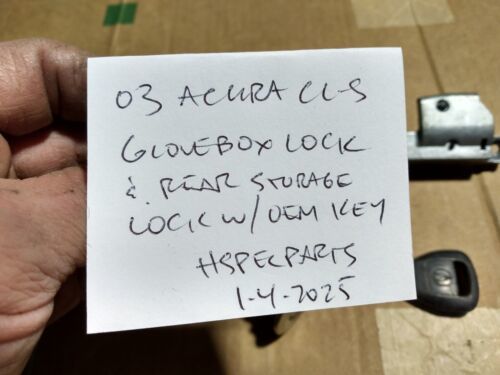 03 ACURA CL-S
GLOVEBOX LOCK
& REAR STORAGE
LOCK W/ OEM KEY
HSPECPARTS
1-4-2025